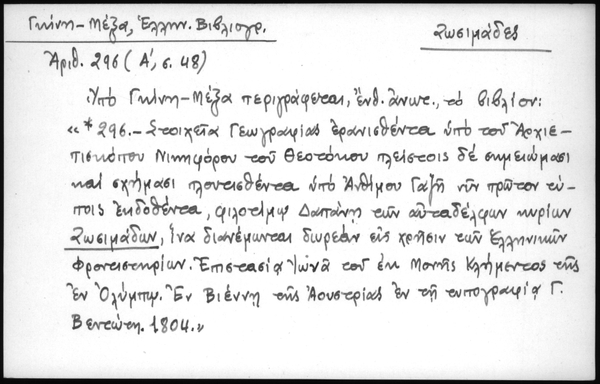 Γκίνη-Μέξα, Ἑλλην. Βιβλιογρ.
Ζωσιμάδες
Ἀριθ. 296 (Α', σ. 48)
Ὑπό Γκίνη-Μέξα περιγράφεται, ἔνθ. ἀνωτ., τό βιβλίον:
«*296.- Στοιχεῖα Γεωγραφίας ἐρανισθέντα ὑπό τοῦ Ἀρχιε-
πισκόπου Νικηφόρου τοῦ Θεοτόκου πλείστοις δέ σημειώμασι
καί σχήμασι πλουτισθέντα ὑπό Ἀνθίμου Γαζῆ νῦν πρῶτον τύ-
ποις ἐκδοθέντα, φιλοτίμῳ δαπάνῃ τῶν αὐταδέλφων κυρίων
Ζωσιμάδων, ἵνα διανέμωνται δωρεάν εἰς χρῆσιν τῶν Ἑλληνικῶν
Φροντιστηρίων. Ἐπιστασίᾳ Ἰωνᾶ τοῦ ἐκ Μονῆς Κλήμεντος τῆς
ἐν Ὀλύμπῳ. Ἐν Βιέννῃ τῆς Ἀουστρίας ἐν τῇ τυπογραφίᾳ Γ.
Βεντώτη. 1804.»